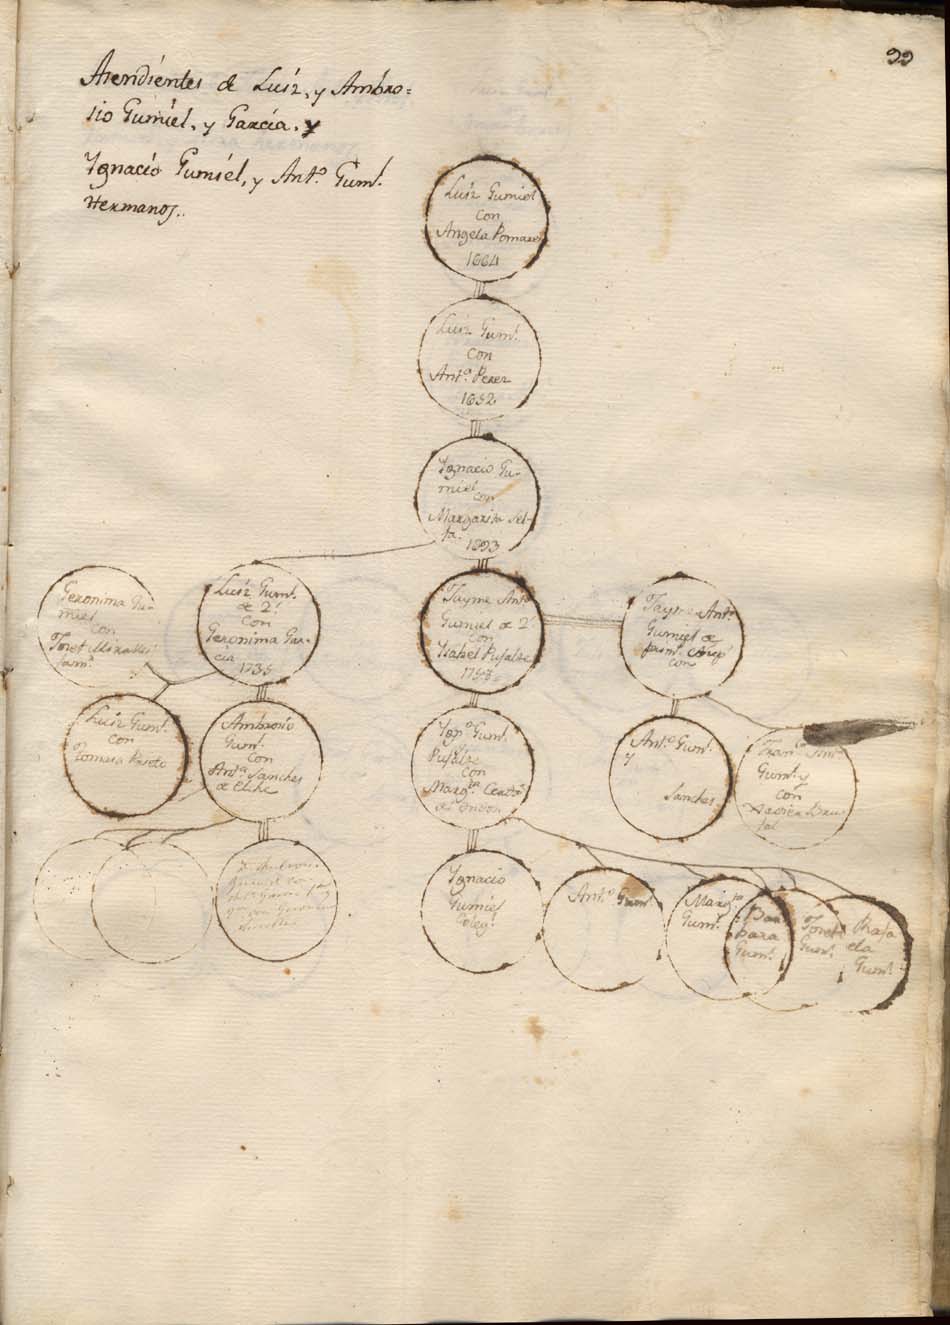 99
Asendientes de Luiz, y Ambro=
sio Gumiel, y García, y
Ygnacio Gumiel, y Antº. Guml.
Hermanos..
Luiz Gumiel
con
Angela Pomares
1664
Luiz Guml.
con
Antª. Perez
1652
Ygnacio Gu-
miel
con
Margarita Sel-
fa.
1693
Geronima Gu-
miel
con
Josef Miralles
Luiz Guml.
de 2º.
con
Geronima Gar-
cia
1735
Jayme Antº
Gumiel de 2º
con
Ysabel Pujalte
Jayme Antº.
Gumiel de
con
Luiz Guml.
con
Tomasa
Ambrosio
Guml.
con
Antª. Sanches
de Elche
Ygnº. Guml.
Pujalte
con
Margta.
Antº. Guml.
y
Sanches
Guml. y
con
Xavier
Ygnacio
Gumiel
Antº. Guml.
Margta
Guml.
Bar
bara
Guml.
Josef
Guml.
Rafa
ela
Guml.